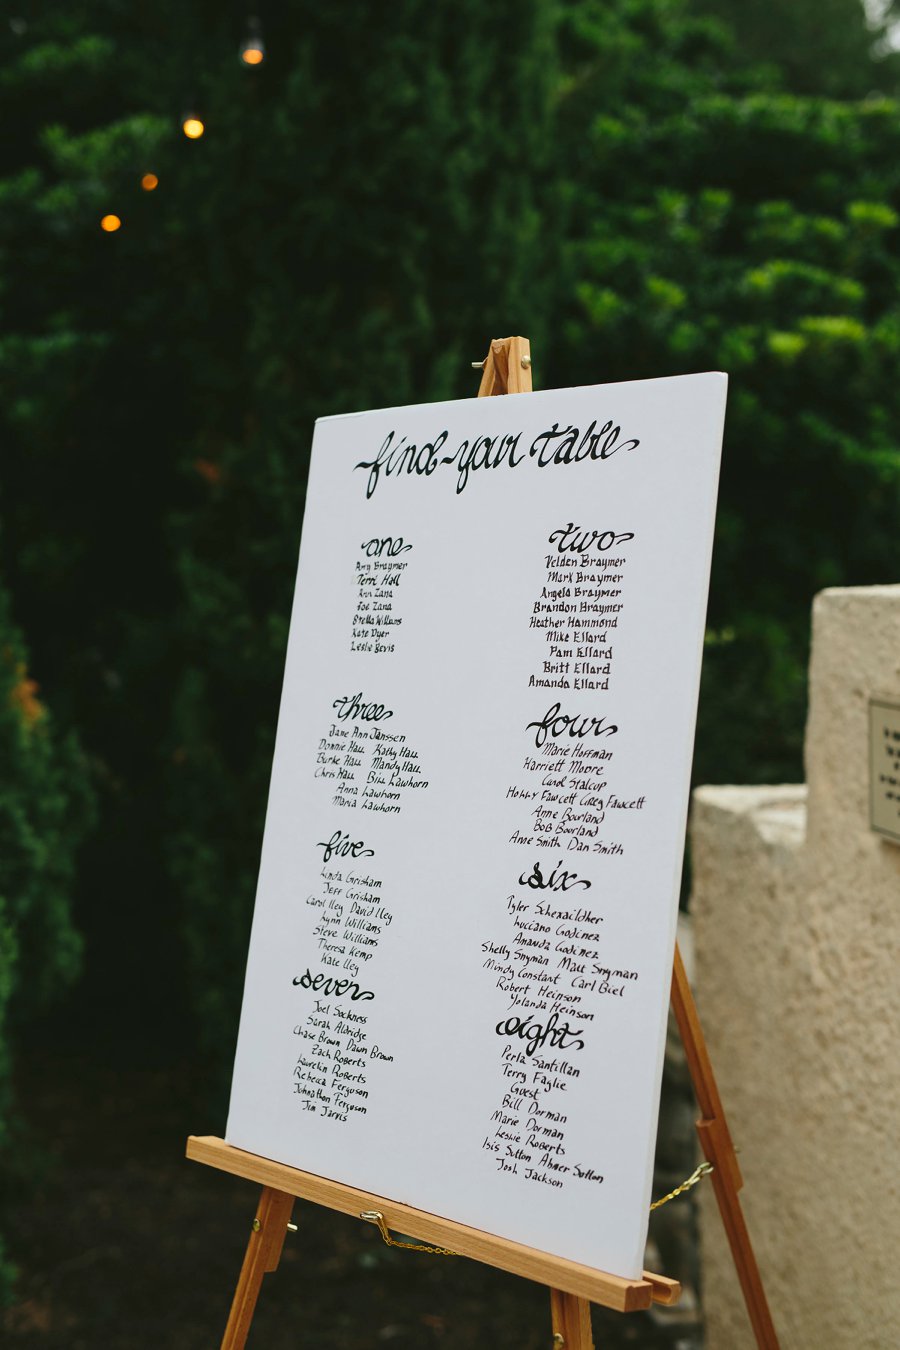 find your table
one
Amy Braymer
Terri Hall
Ann Zana
Joe Zana
Stella Williams
Kate Dyer
Leslie Bevis
two
Velden Braymer
Mark Braymer
Angela Braymer
Brandon Braymer
Heather Hammond
Mike Ellard
Pam Ellard
Britt Ellard
Amanda Ellard
three
Jane Ann Janssen
Donnie Hall Kathy Hall
Burke Hall Mandy Hall
Chris Hall Bill Lawhorn
Anna Lawhorn
Maria Lawhorn
four
Marie Hoffman
Harriett Moore
Carol Stalcup
Holly Fawcett Casey Fawcett
Anne Bourland
Bob Bourland
Anne Smith Dan Smith
five
Linda Grisham
Jeff Grisham
Carol Iley David Iley
Lynn Williams
Steve Williams
Theresa Kemp
Kate Iley
six
Tyler Schexnildher
Luciano Godinez
Amanda Godinez
Shelly Snyman Matt Snyman
Mindy Constant Carl Biel
Robert Heinson
Yolanda Heinson
seven
Joel Sockness
Sarah Aldridge
Chase Brown Dawn Brown
Zach Roberts
Laurelin Roberts
Rebecca Ferguson
Johnathon Ferguson
Jim Jarvis
eight
Perla Santillan
Terry Faglie
Guest
Bill Dorman
Marie Dorman
Leslie Roberts
Isis Sutton Ahmer Sutton
Josh Jackson